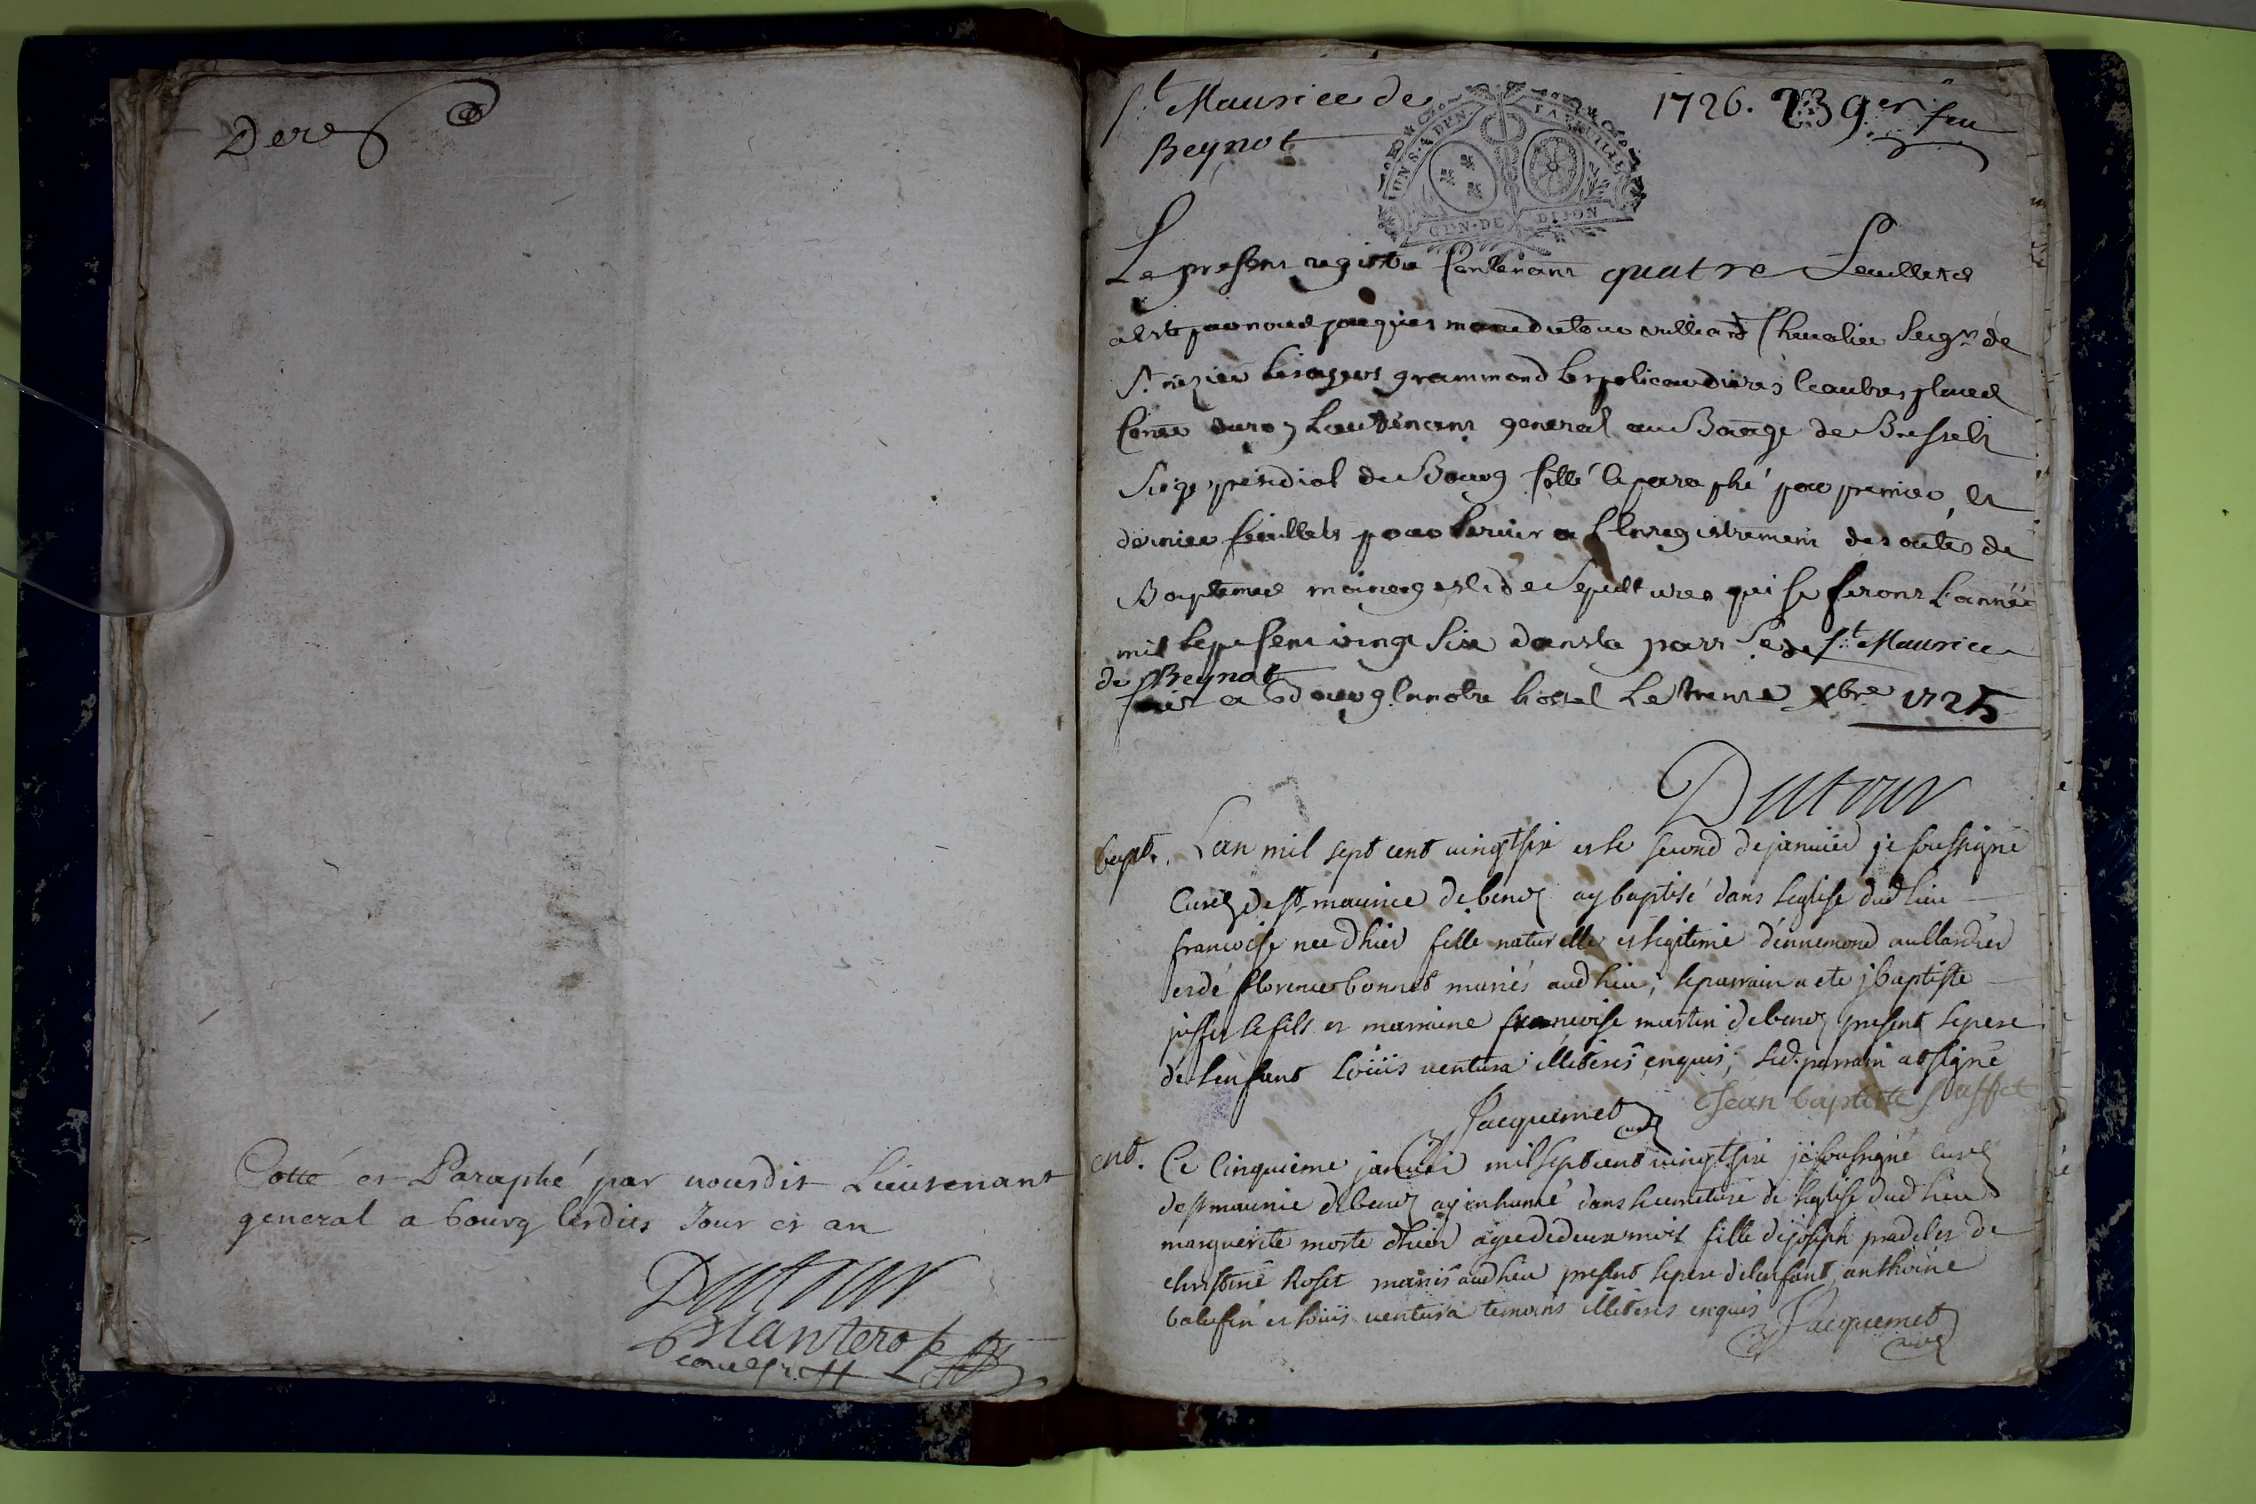 Der
Cotté et Paraphé par nousdit Lieutenant
general a bourg lesdits Jour et an
Dutour
St Maurice de
Beynot
1726. 239 er feu
UN S. 4 DEN. LA FEUILLE
GEN. DE DIJON
Le present registre Contenant quatre feuillets
a esté par nous jacques marie dutour vulliard Chevalier Seigr de
St nizier grammond les et autres places
Coner du roy Lieutenant general au Baage de Bresse et
Siege presidial de Bourg Cotté et paraphé par premier et
dernier feuillets pour servir a Lenregistrement des actes de
Baptemes mariages et de Sepultures qui se feront Lannée
mil sept cent vingt six dans la parr se de St Maurice
de Beynot
fait a Bourg en notre hostel Le trente Xbre 1725
Dutour
bapt. Lan mil sept cent vingtsix et le second de janvier je soussigné
Curé de st maurice de benoz ay baptisé dans leglise dud lieu
francoise nee dhier fille naturelle et legitime d'ennemond aullardier
et de florence bonnet mariés aud lieu; le parrain a ete j baptiste
joffet le fils et marraine francoise martin de benoz present le pere
de lenfant loüis ventura illiteres enquis; led. parrain a signé
Jacquemet curé Jean baptiste Joffet
ent. Ce cinquieme janvier mil sept cent vingtsix je soussigné curé
de st maurice de benoz ay inhumé dans le cimetiere de leglise dud lieu
marguerite morte dhier agee de deux mois fille de joseph pradel et de
christine Roset mariés aud lieu present le pere de lenfant, anthoine
balufin et loüis ventura temoins illiteres enquis Jacquemet
curé